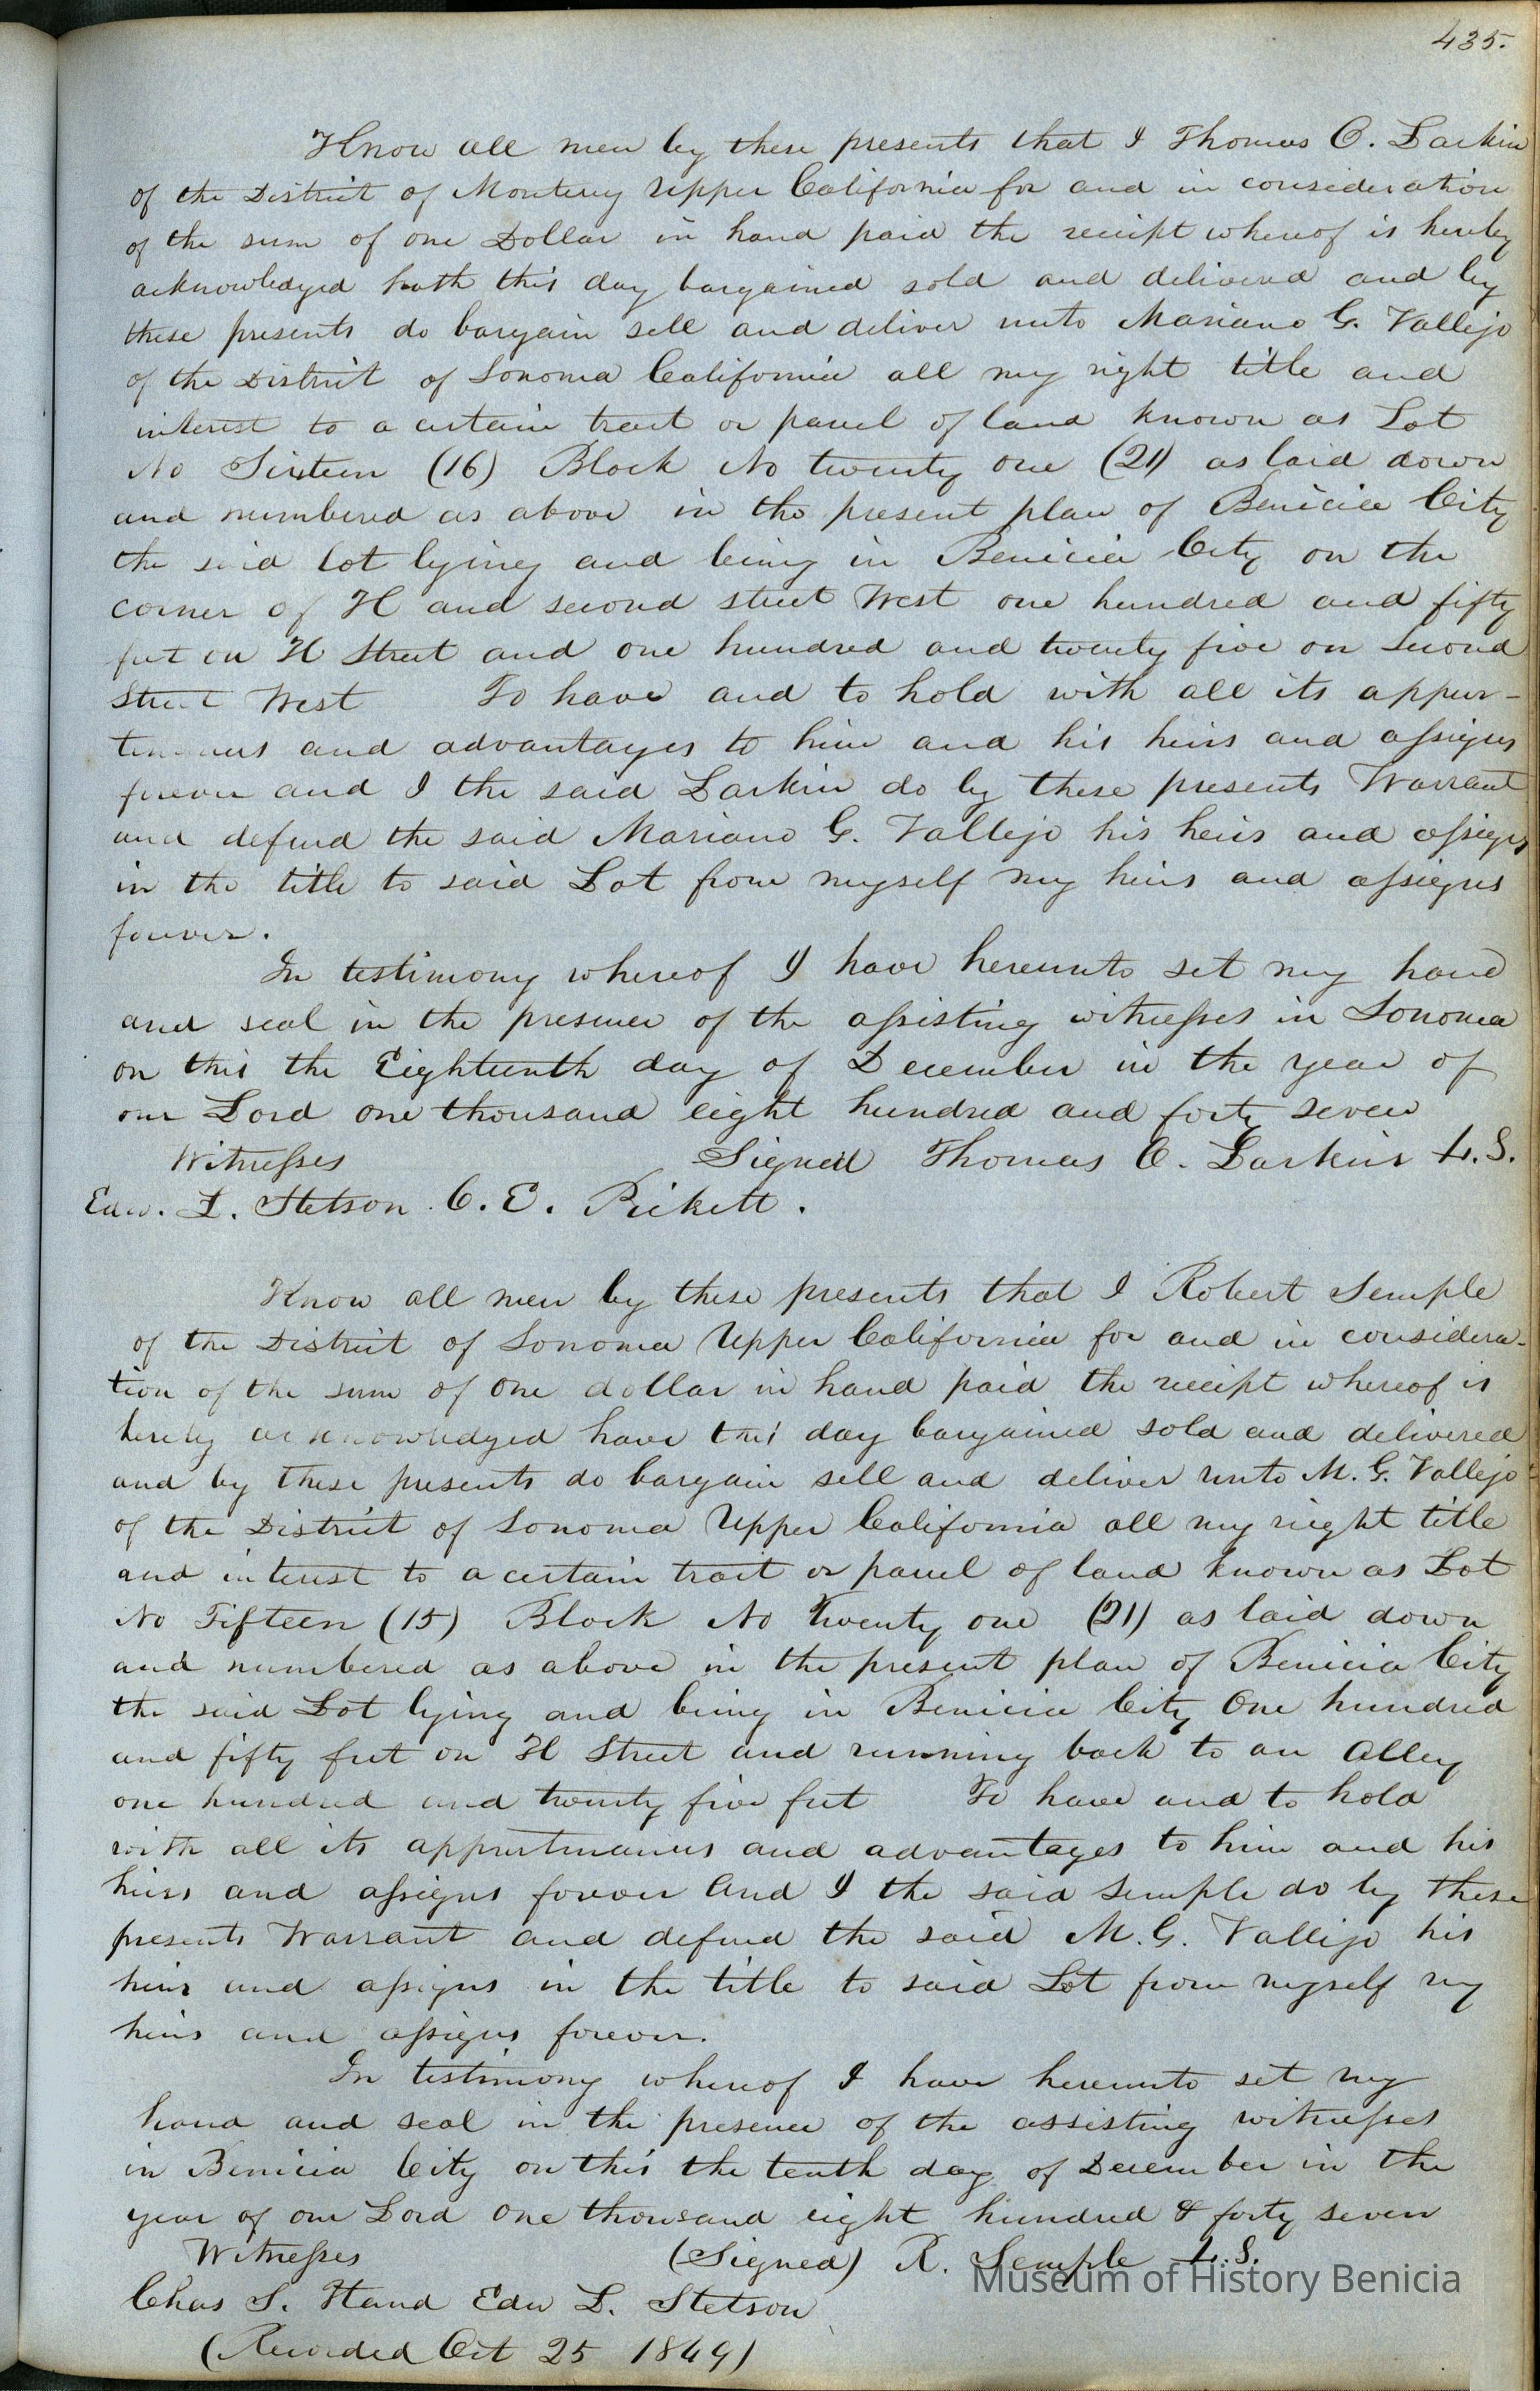 435.
Know all men by these presents that I Thomas O. Larkin
of the District of Monterey Upper California for and in consideration
of the sum of one Dollar in hand paid the receipt whereof is hereby
acknowledged hath this day bargained sold and delivered and by
these presents do bargain sell and deliver unto Mariano G. Vallejo
of the District of Sonoma California all my right title and
interest to a certain tract or parcel of land known as Lot
No Sixteen (16) Block No twenty one (21) as laid down
and numbered as above in the present plan of Benicia City
the said lot lying and being in Benicia City on the
corner of H and second street West one hundred and fifty
feet on H Street and one hundred and twenty five on Second
Street West To have and to hold with all its appur-
tenances and advantages to him and his heirs and assigns
forever and I the said Larkin do by these presents Warrant
and defend the said Mariano G. Vallejo his heirs and assigns
in the title to said Lot from myself my heirs and assigns
forever.
In testimony whereof I have hereunto set my hand
and seal in the presence of the assisting witnesses in Sonoma
on this the Eighteenth day of December in the year of
our Lord one thousand eight hundred and forty seven
Witnesses Signed Thomas O. Larkin L.S.
Edw. L. Stetson C. E. Pickett.
Know all men by these presents that I Robert Semple
of the District of Sonoma Upper California for and in considera-
tion of the sum of one dollar in hand paid the receipt whereof is
hereby acknowledged have this day bargained sold and delivered
and by these presents do bargain sell and deliver unto M. G. Vallejo
of the District of Sonoma Upper California all my right title
and interest to a certain tract or parcel of land known as Lot
No Fifteen (15) Block No Twenty one (21) as laid down
and numbered as above in the present plan of Benicia City
the said Lot lying and being in Benicia City One hundred
and fifty feet on H Street and running back to an Alley
one hundred and twenty five feet To have and to hold
with all its appurtenances and advantages to him and his
heirs and assigns forever And I the said Semple do by these
presents Warrant and defend the said M. G. Vallejo his
heirs and assigns in the title to said Lot from myself my
heirs and assigns forever.
In testimony whereof I have hereunto set my
hand and seal in the presence of the assisting witnesses
in Benicia City on this the tenth day of December in the
year of our Lord One thousand eight hundred & forty seven
Witnesses (Signed) R. Semple L.S.
Museum of History Benicia
Chas S. Hand Edw L. Stetson
(Recorded Oct 25 1849)